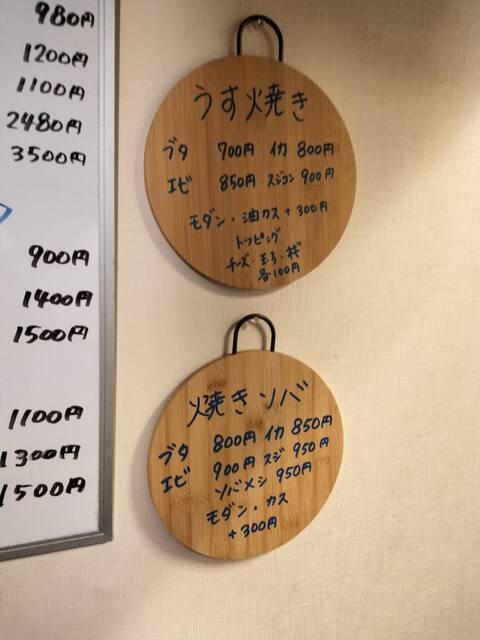 980円
1200円
1100円
2480円
3500円
900円
1400円
1500円
1100円
1300円
1500円
うす焼き
ブタ 700円 イカ 800円
エビ 850円 スジコン 900円
モダン・油カス+300円
トッピング
チーズ・玉子・ネギ
各100円
焼きソバ
ブタ 800円 イカ 850円
エビ 900円 スジ 950円
ソバメシ 950円
モダン・カス
+300円